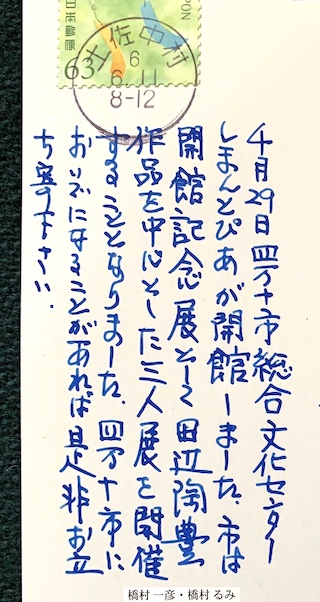 日本郵便
NIPPON
63
土佐中村
6
6.11
8-12
4月29日四万十市総合文化センター
しまんとぴあが開館しました。市は
開館記念展として田辺陶豊
作品を中心とした三人展を開催
することとなりました。四万十市に
おいでになることがあれば是非お立
ち寄り下さい。
橋村 一彦・橋村 るみ